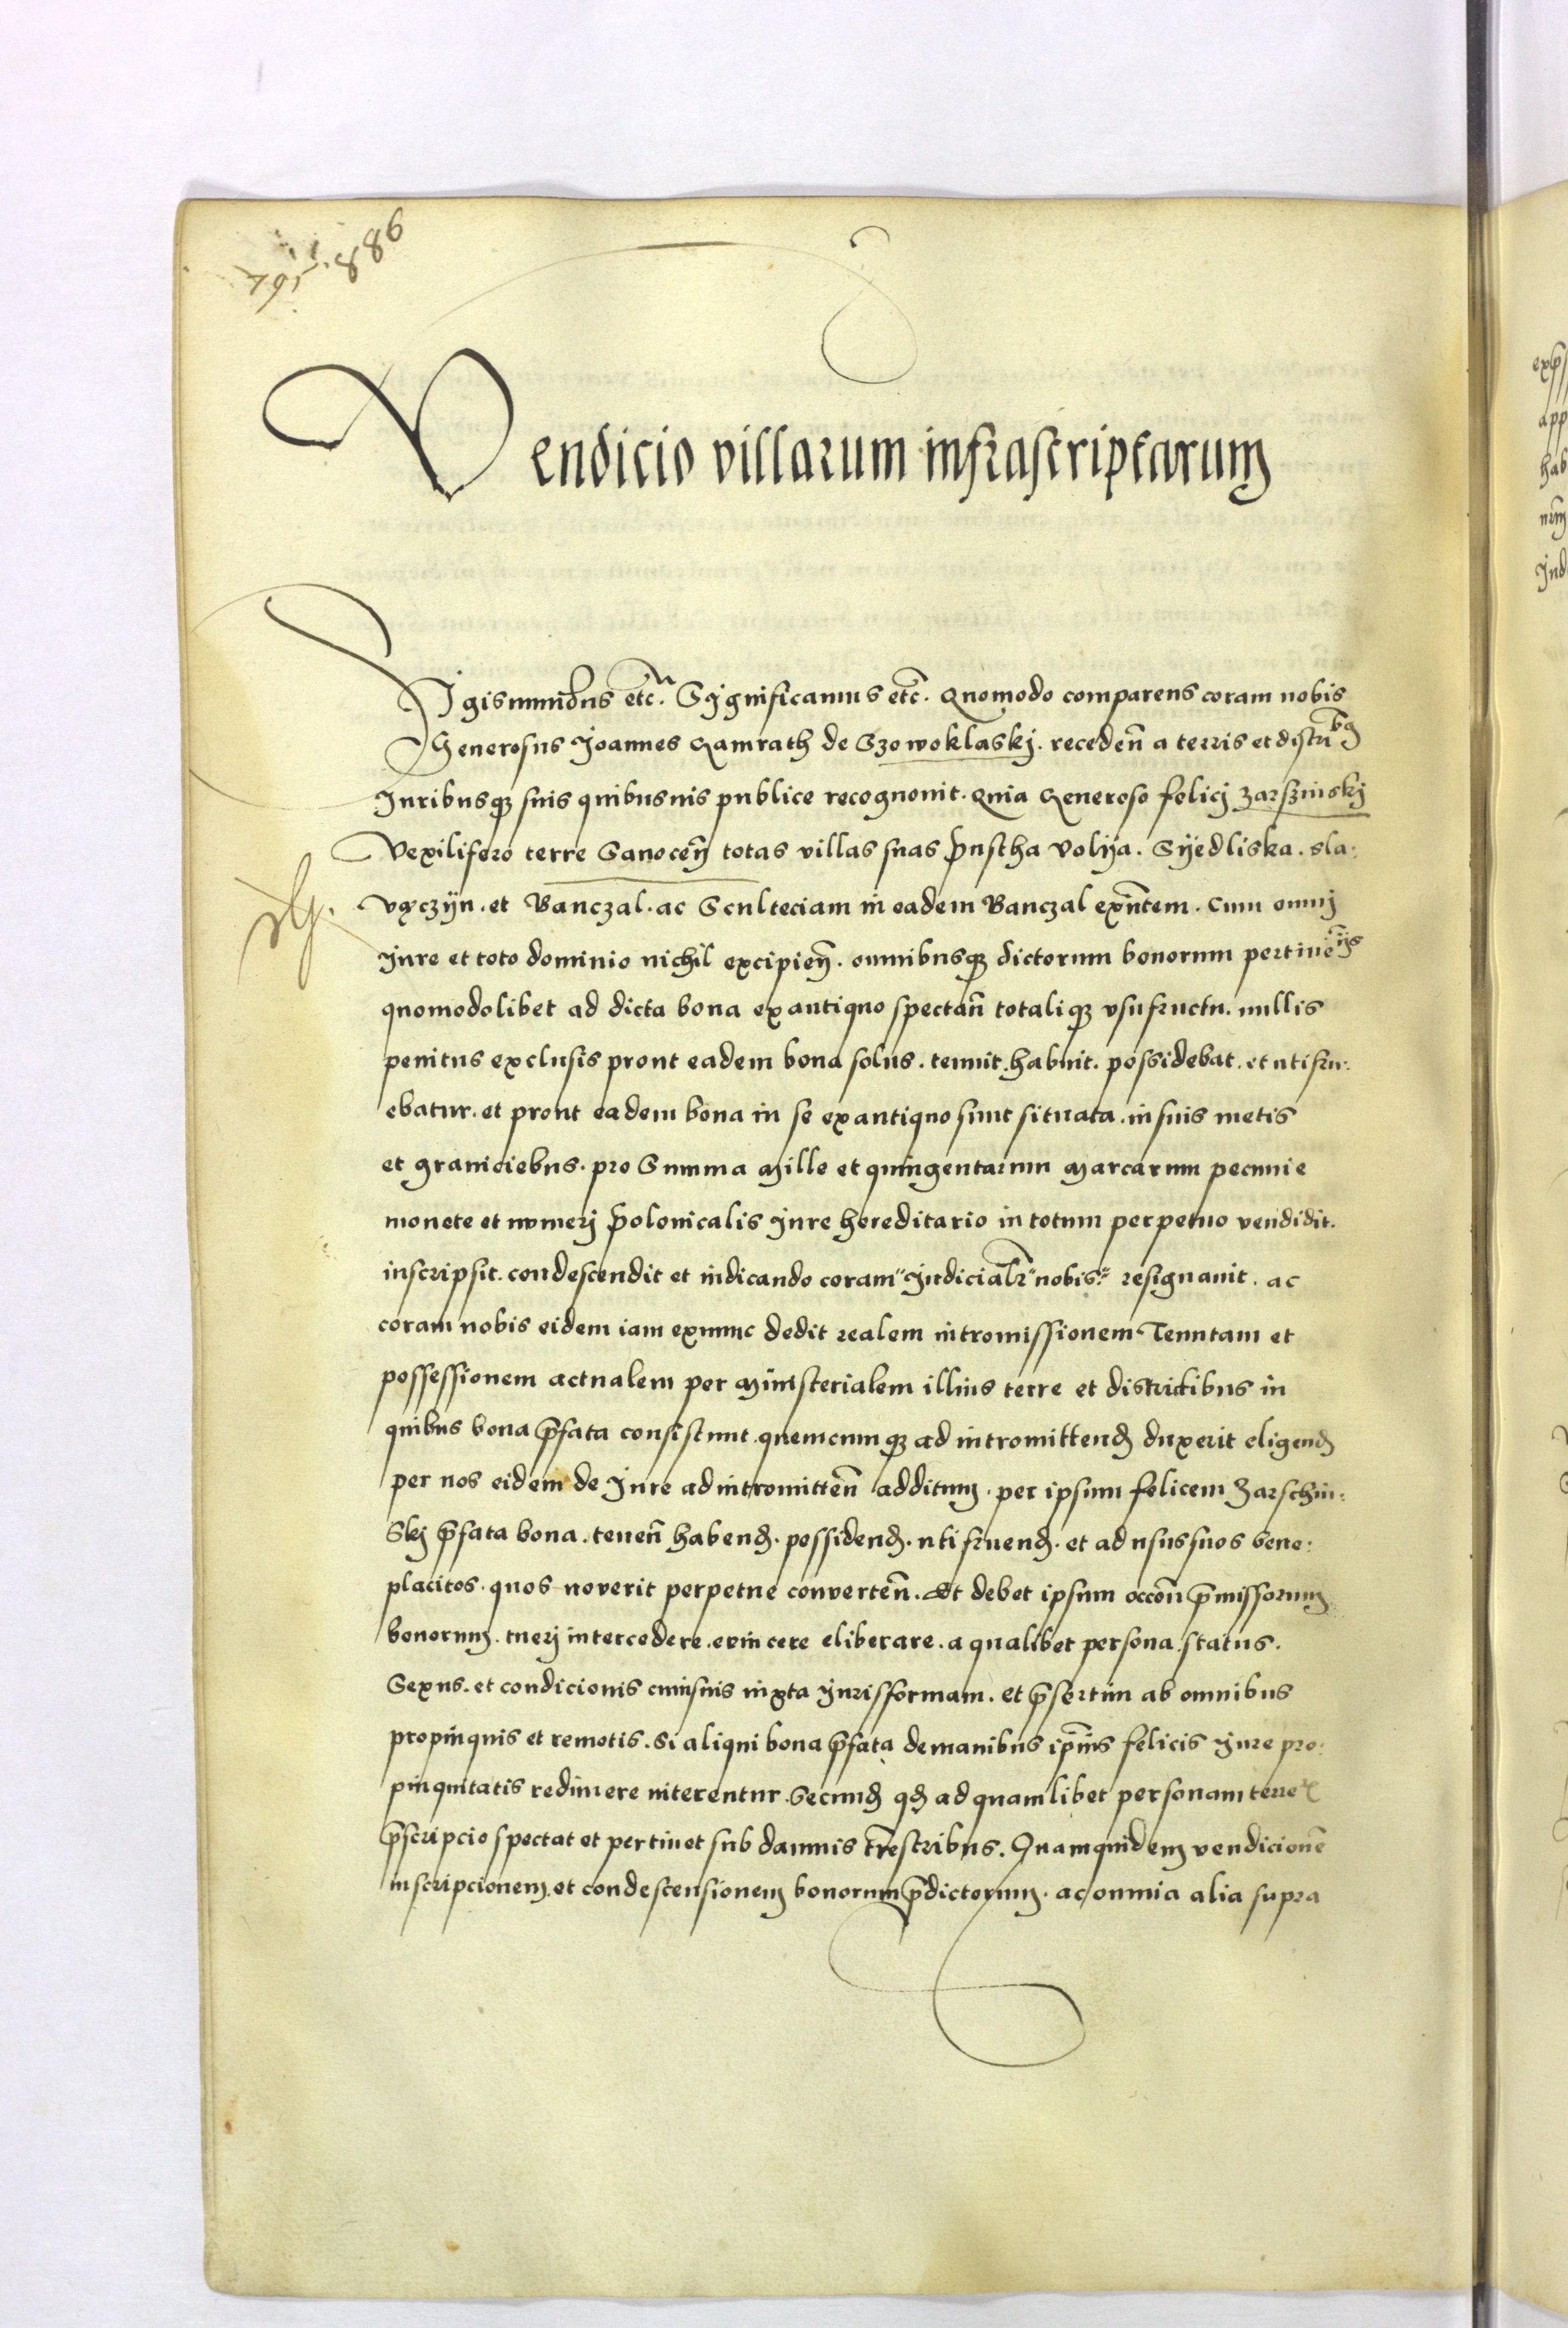 886
Vendicio villarum infrascriptarum
Sigismundus etc. Sygnificamus etc. Quomodo comparens coram nobis
Generosus Joannes Camrath de Szowoklaskj. receden̄ a terris et distri᷒
Juribusqꝫ suis quibusuis publice recognouit. Quia Generoso felicj Zarszinskj
Vexilifero terre Sanocen̄ totas villas suas Pustha Volija. Sijedliska. Sla:
vączijn. et Banczal. ac Sculteciam in eadem Banczal exn̄tem. Cum omnj
Jure et toto dominio nichil excipien̄. omnibusqꝫ dictorum bonorum pertinen̄ijs
quomodolibet ad dicta bona ex antiquo spectan̄ totaliqꝫ vsufructu. nullis
penitus exclusis prout eadem bona solus. tenuit. habuit. possidebat. et utifru:
ebatur. et prout eadem bona in se ex antiquo sunt situata. in suis metis
et graniciebus. pro Summa Mille et quingentarum Marcarum pecunie
monete et numerj Polonicalis Jure hereditario in totum perpetuo vendidit.
inscripsit. condescendit et indicando coram "Judicialr̄" nobis:" resignauit. ac
coram nobis eidem iam exnunc dedit realem intromissionem Tenutam et
possessionem actualem per Ministerialem illius terre et districtibus in
quibus bona p̄fata consistunt. quemcumqꝫ ad intromittend̄ duxerit eligend̄
per nos eidem de Jure ad intromitten̄ additum. per ipsum felicem Zarschin:
Skj p̄fata bona. tenen̄ habend̄. possidend̄. utifruend̄. et ad usus suos bene:
placitos. quos noverit perpetue converten̄. Et debet ipsum occōn p̄missorum
bonorum. tuerj intercedere. evincere eliberare. a qualibet persona. status.
Sexus. et condicionis cuiusuis iuxta Juris formam. et p̄sertim ab omnibus
propinquis et remotis. Si aliqui bona p̄fata de manibus ip̄ius felicis Jure pro:
pinquitatis redimere niterentur. Secund̄ qd̄ ad quamlibet personam terre
p̄scripcio spectat et pertinet sub damnis tr̄estribus. Quamquidem vendicionē
inscripcionem. et condescensionem bonorum p̄dictorum. ac omnia alia supra